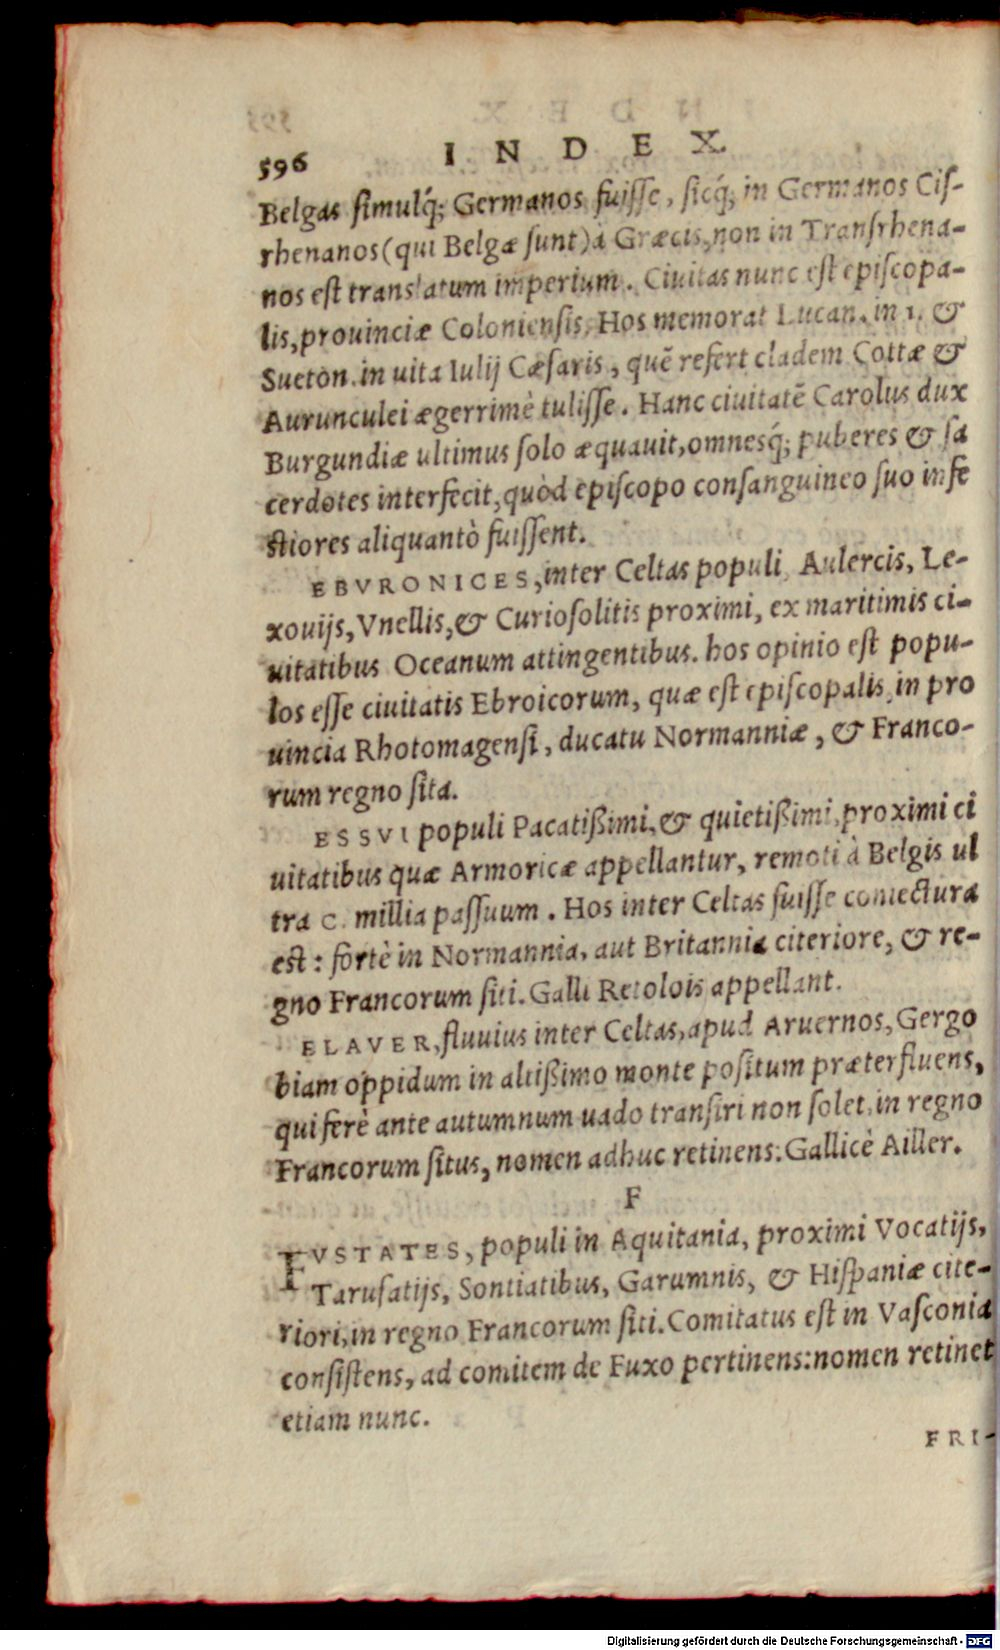 596 INDEX.
Belgas simulq́; Germanos fuisse, sicq́; in Germanos Cis-
rhenanos (qui Belgæ sunt) à Græcis, non in Transrhena-
nos est translatum imperium. Ciuitas nunc est episcopa-
lis, prouinciæ Coloniensis. Hos memorat Lucan. in 1. &
Sueton. in uita Iulij Cæsaris, quē refert cladem Cottæ &
Aurunculei ægerrimè tulisse. Hanc ciuitatē Carolus dux
Burgundiæ ultimus solo æquauit, omnesq́; puberes & sa
cerdotes interfecit, quòd episcopo consanguineo suo infe
stiores aliquantò fuissent.
EBVRONICES, inter Celtas populi, Aulercis, Le-
xouijs, Vnellis, & Curiosolitis proximi, ex maritimis ci-
uitatibus Oceanum attingentibus. hos opinio est popu-
los esse ciuitatis Ebroicorum, quæ est episcopalis, in pro
uincia Rhotomagensi, ducatu Normanniæ, & Franco-
rum regno sita.
ESSVI populi Pacatißimi, & quietißimi, proximi ci
uitatibus quæ Armoricæ appellantur, remoti à Belgis ul
tra C. millia passuum. Hos inter Celtas fuisse coniectura
est: fortè in Normannia, aut Britannia citeriore, & re-
gno Francorum siti. Galli Retolois appellant.
ELAVER, fluuius inter Celtas, apud Aruernos, Gergo
biam oppidum in altißimo monte positum præterfluens,
qui ferè ante autumnum uado transiri non solet, in regno
Francorum situs, nomen adhuc retinens: Gallicè Ailler.
F
FVSTATES, populi in Aquitania, proximi Vocatijs,
Tarusatijs, Sontiatibus, Garumnis, & Hispaniæ cite-
riori, in regno Francorum siti. Comitatus est in Vasconia
consistens, ad comitem de Fuxo pertinens: nomen retinet
etiam nunc.
FRI-
Digitalisierung gefördert durch die Deutsche Forschungsgemeinschaft - DFG